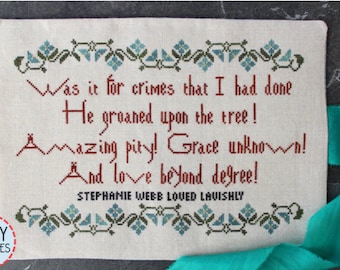 Was it for crimes that I had done
He groaned upon the tree!
Amazing pity! Grace unknown!
And love beyond degree!
STEPHANIE WEBB LOVED LAVISHLY